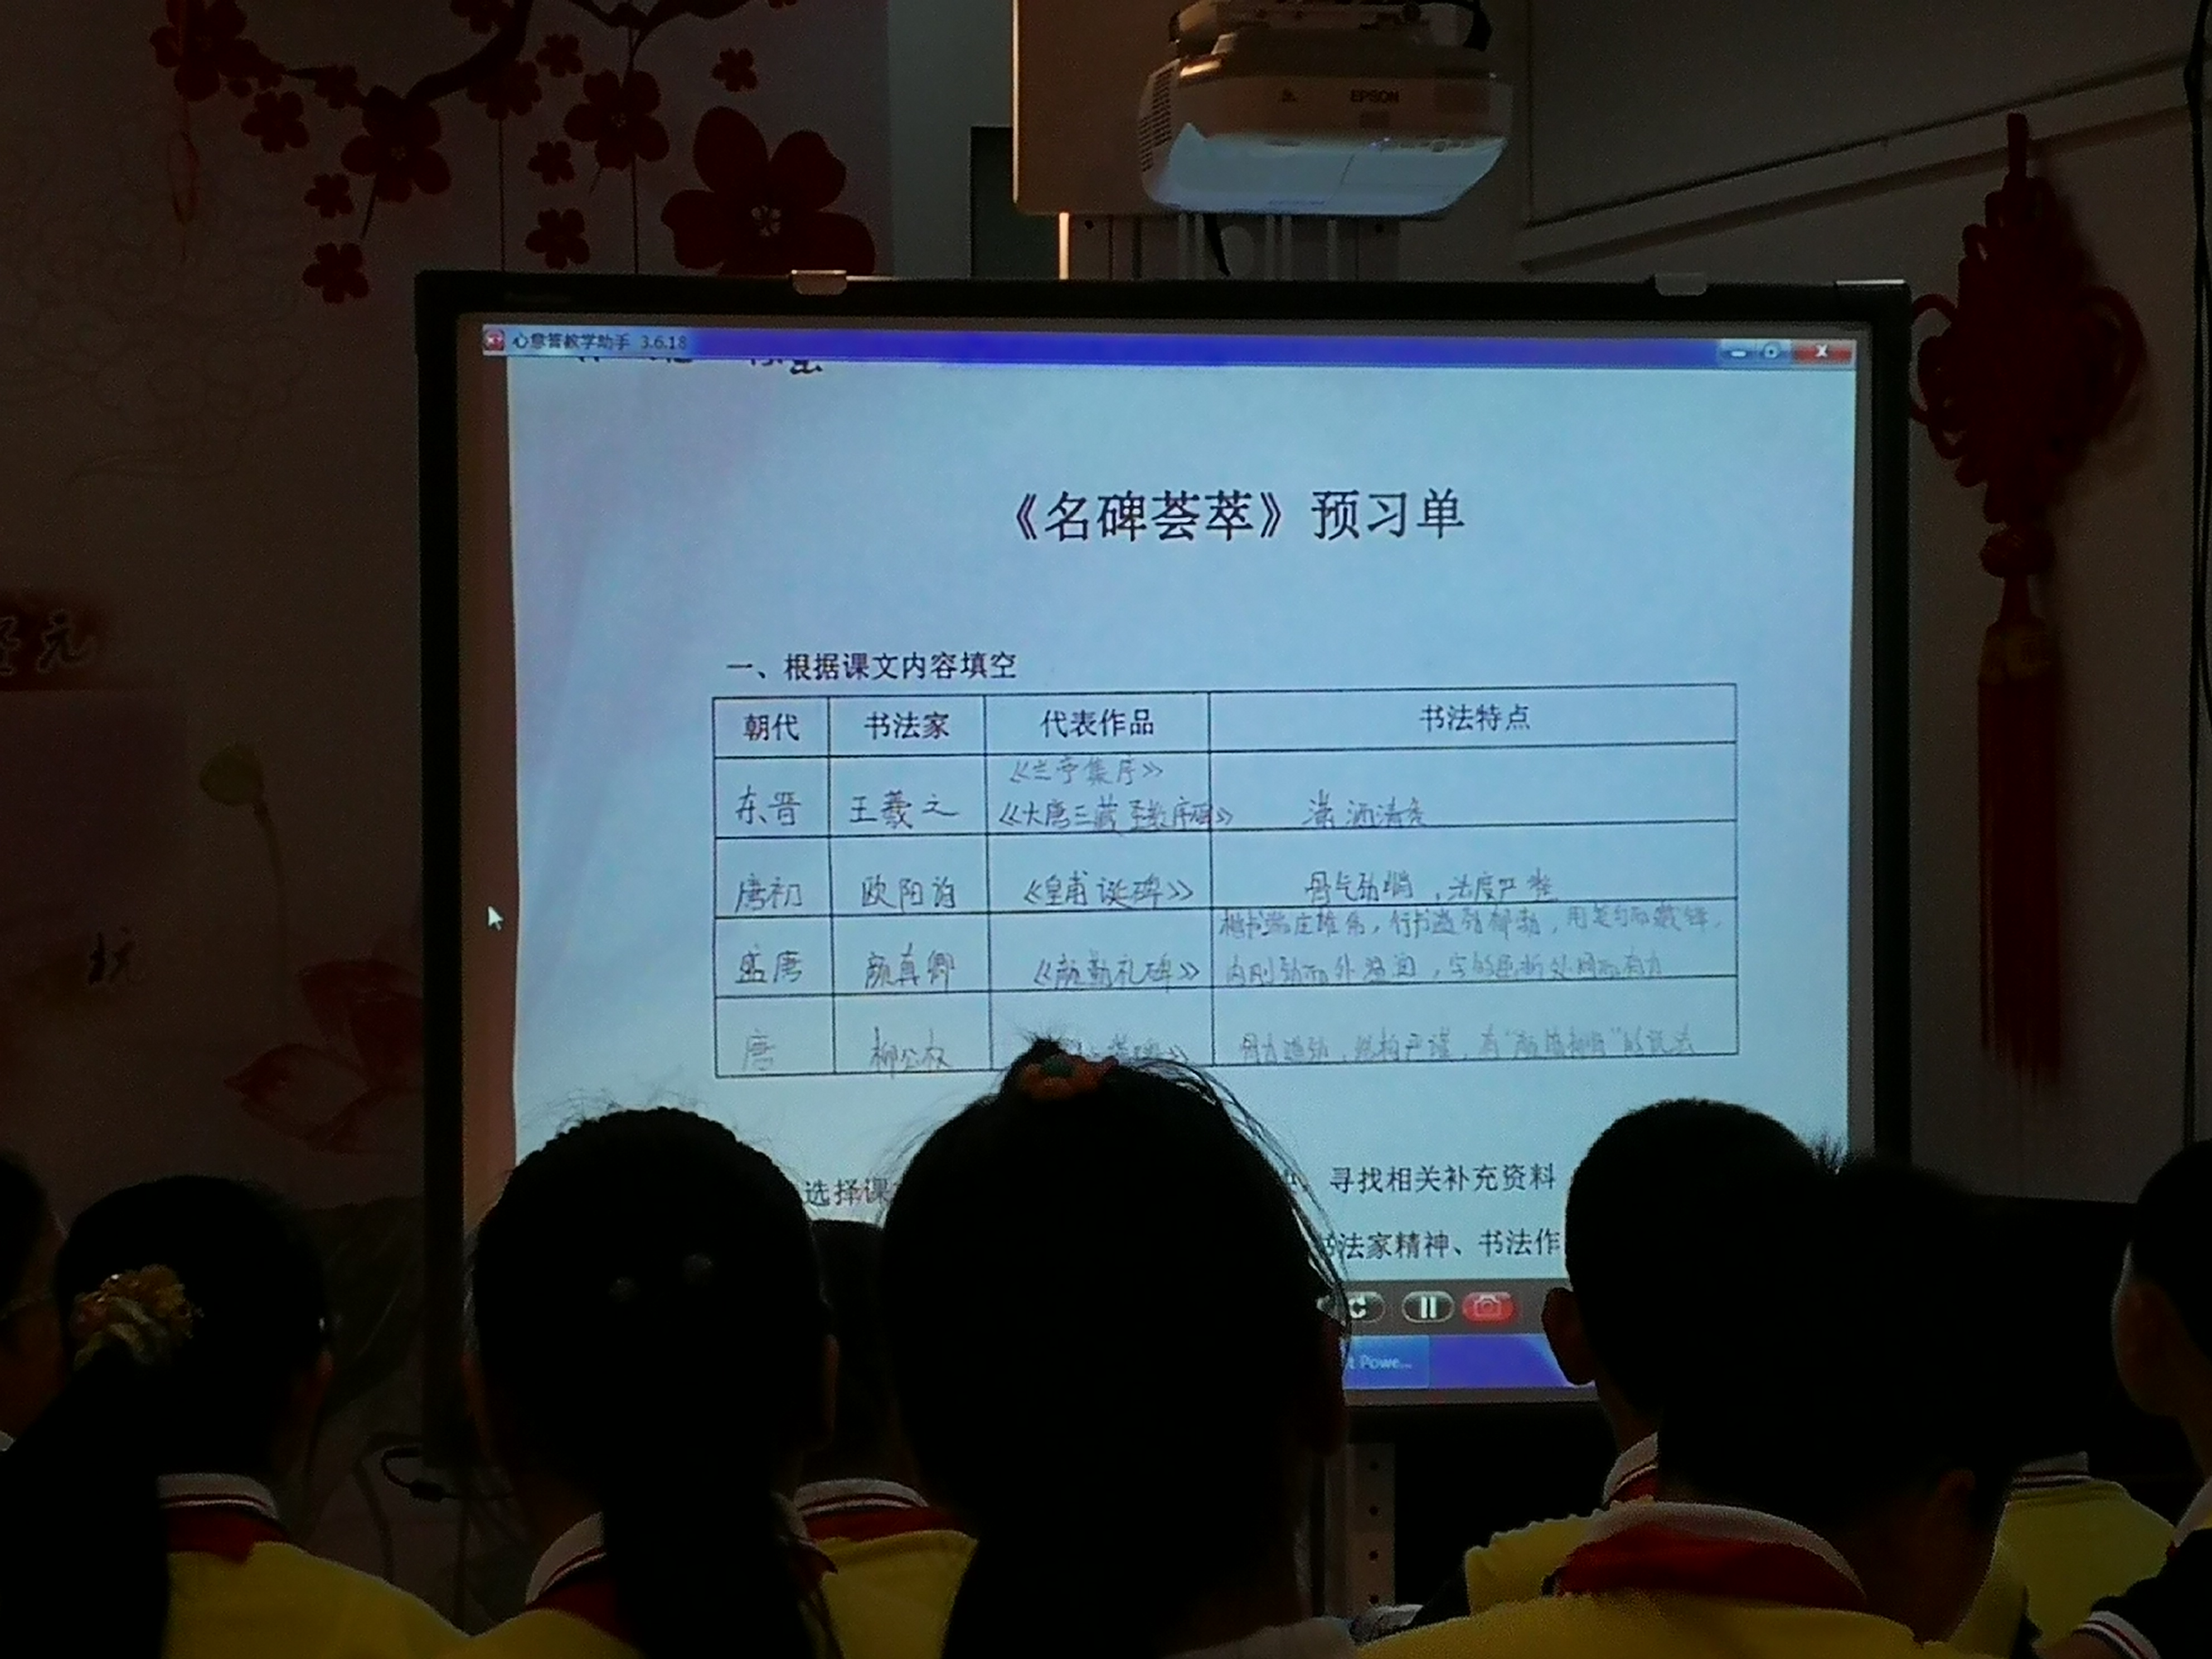 EPSON
心意答教学助手 3.6.18
《名碑荟萃》预习单
一、根据课文内容填空
朝代 书法家 代表作品 书法特点
东晋 王羲之 《兰亭集序》
《大唐三藏圣教序碑》 潇洒清秀
唐初 欧阳询 《皇甫诞碑》 骨气劲峭，法度严整
盛唐 颜真卿 《颜勤礼碑》 楷书端庄雄伟，行书遒劲郁勃，用笔匀而藏锋，
内刚劲而外温润，字的曲折处圆而有力
唐 柳公权 骨力遒劲，结构严谨，有“颜筋柳骨”的说法
选择课 寻找相关补充资料
书法家精神、书法作
t Powe...
元